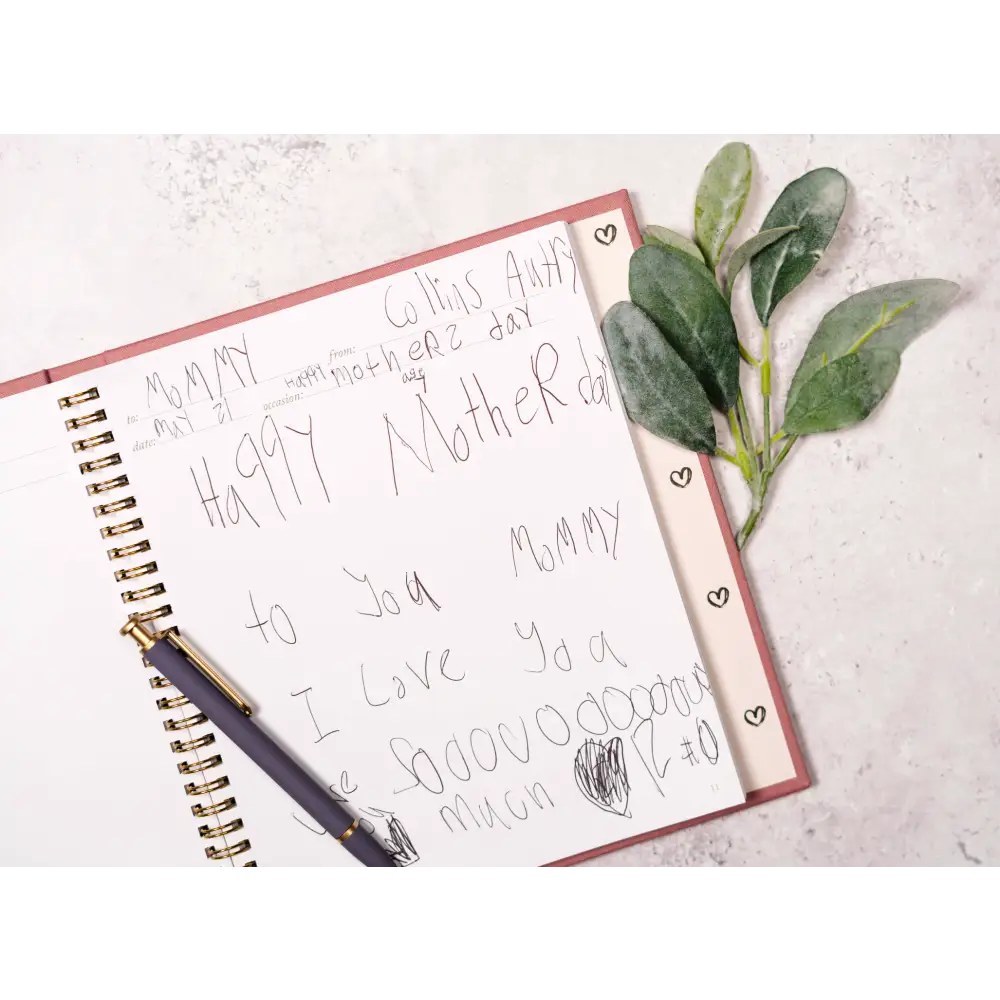 Collins Autry
to: MoMMY from:
Happy MotheRs day
date: MAY 21 occasion:
Happy MotheR day
to You MoMMY
I Love You
Soooooooooooo
much